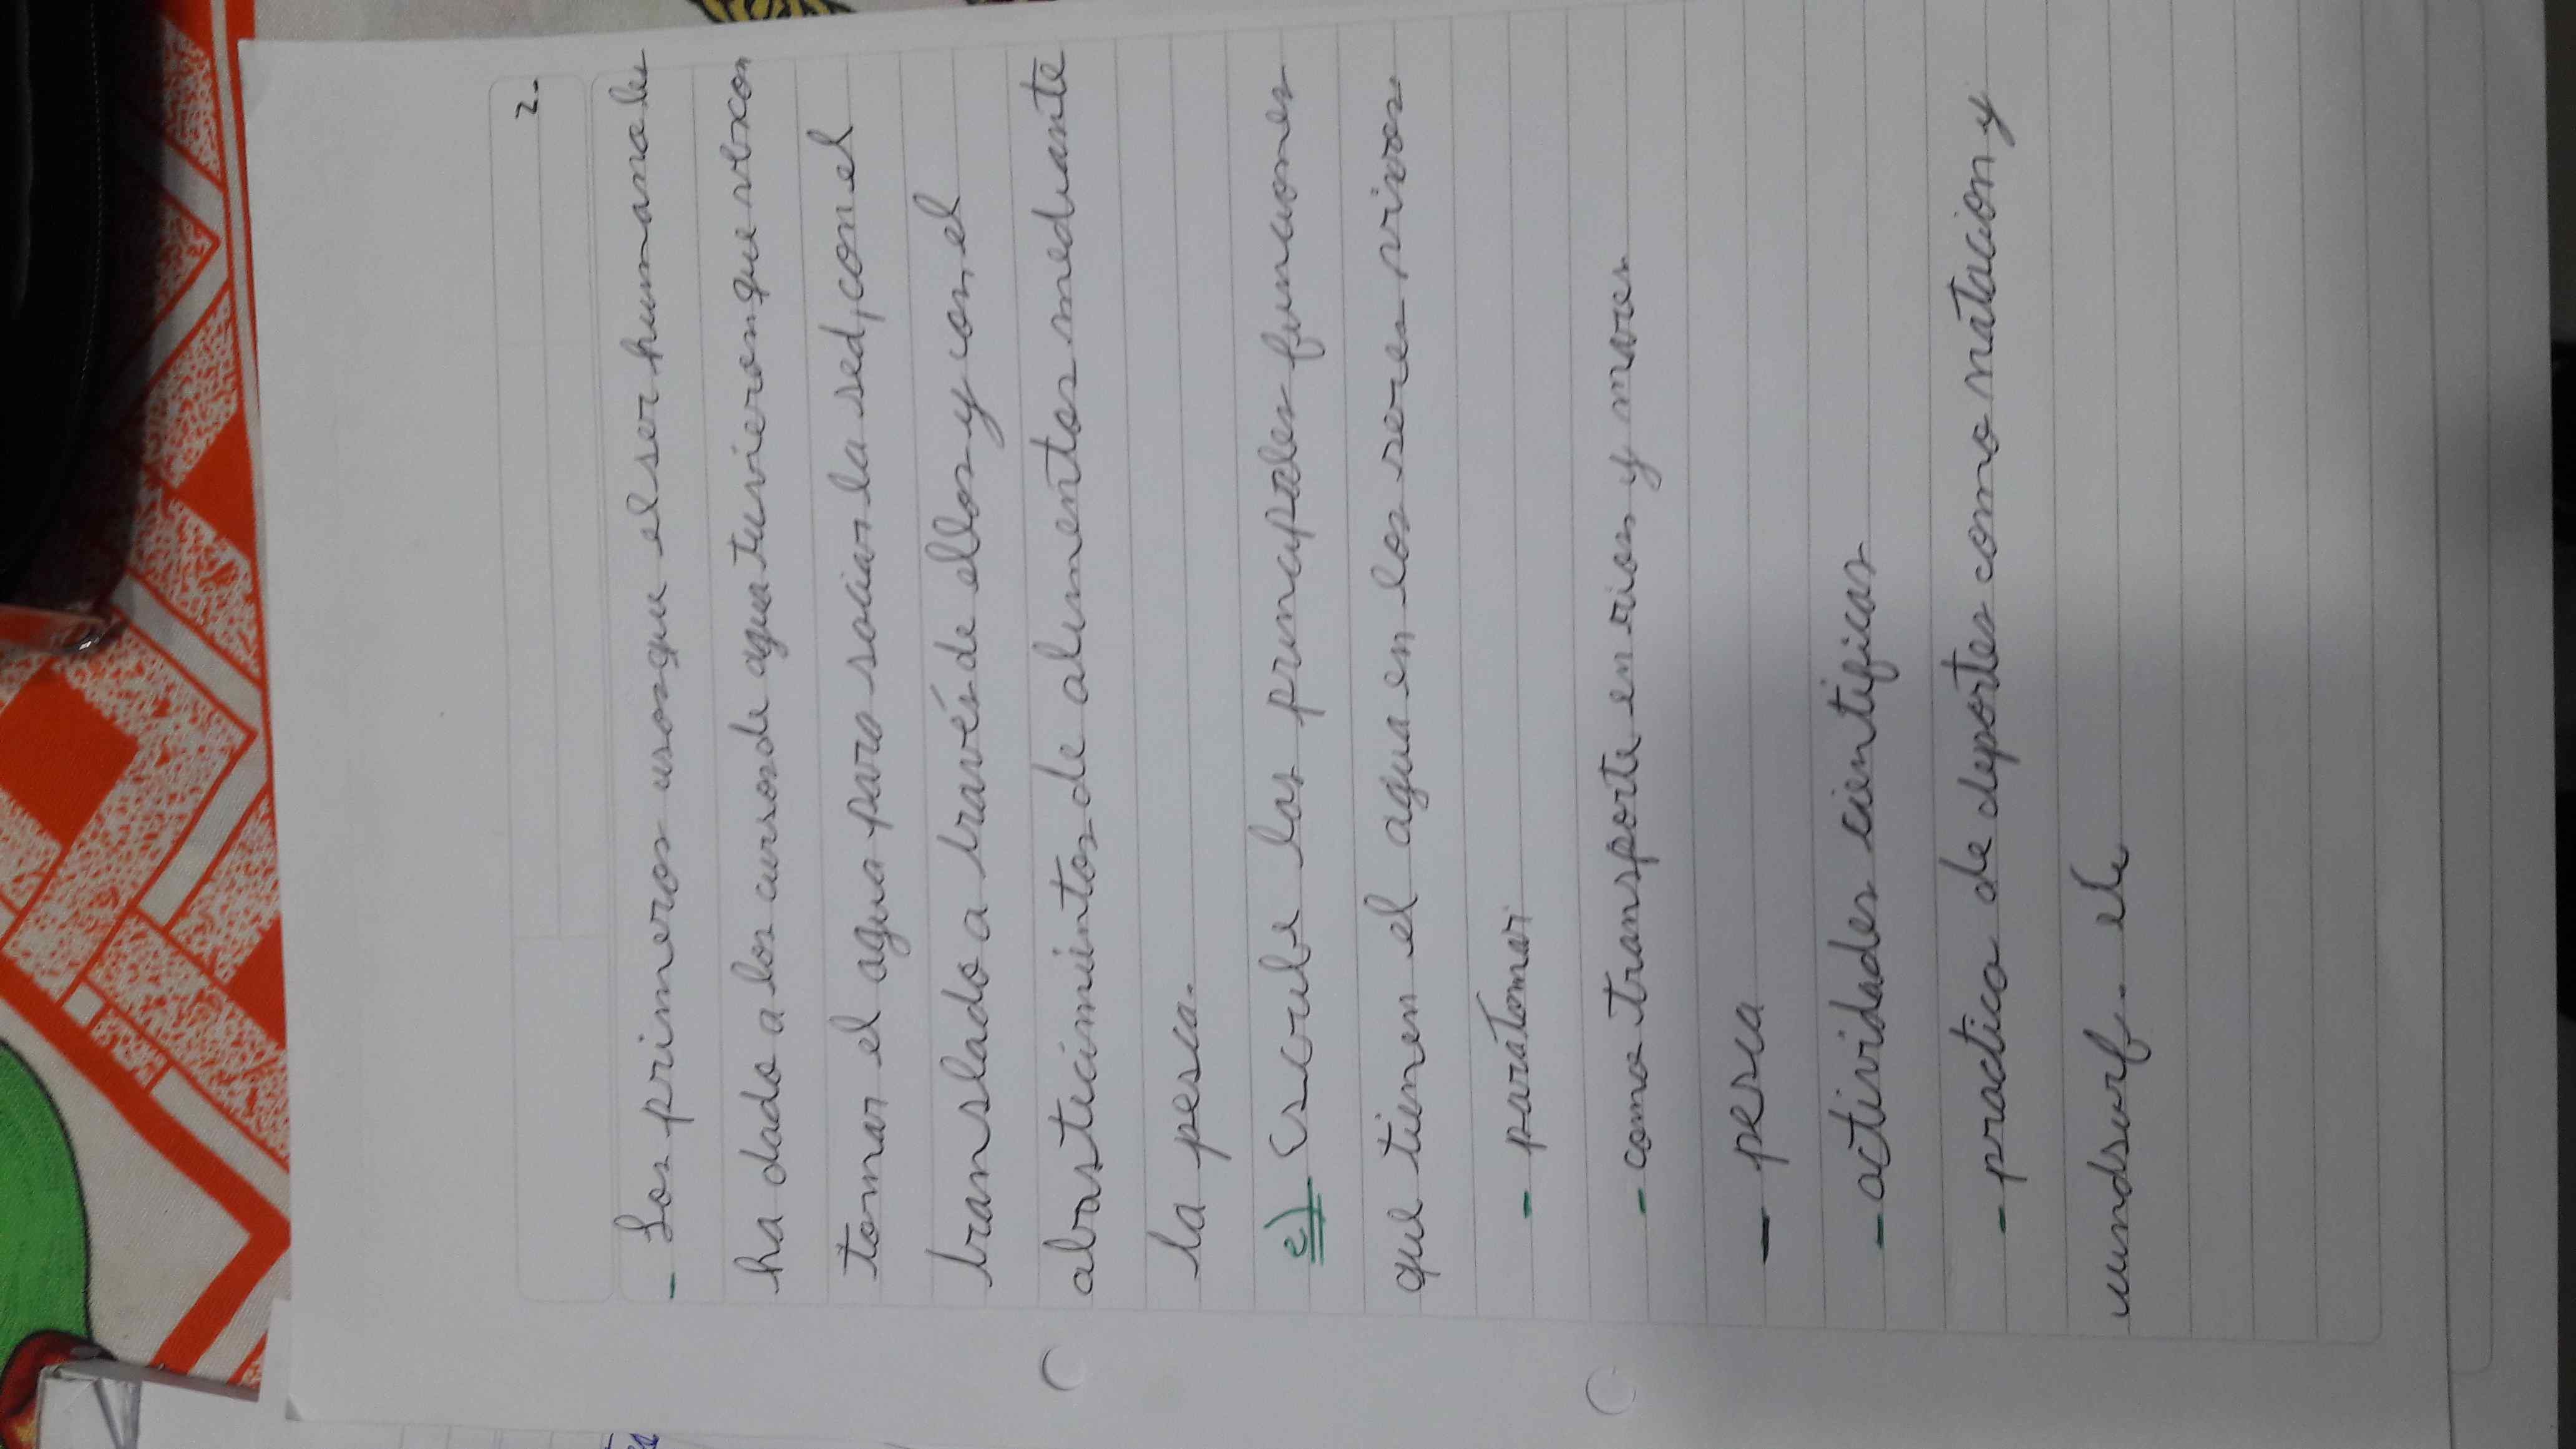 2.
- Los primeros usos que el ser humano les
ha dado a los cursos de agua tuvieron que ver con
tomar el agua para saciar la sed, con el
translado a través de ellos y con el
abastecimientos de alimentos mediante
la pesca.
e) Escribe las principales funciones
que tienen el agua en los seres vivos
- para tomar
- como transporte en rios y mares
- pesca
- actividades cientificas
- practica de deportes como natacion y
windsurf. etc